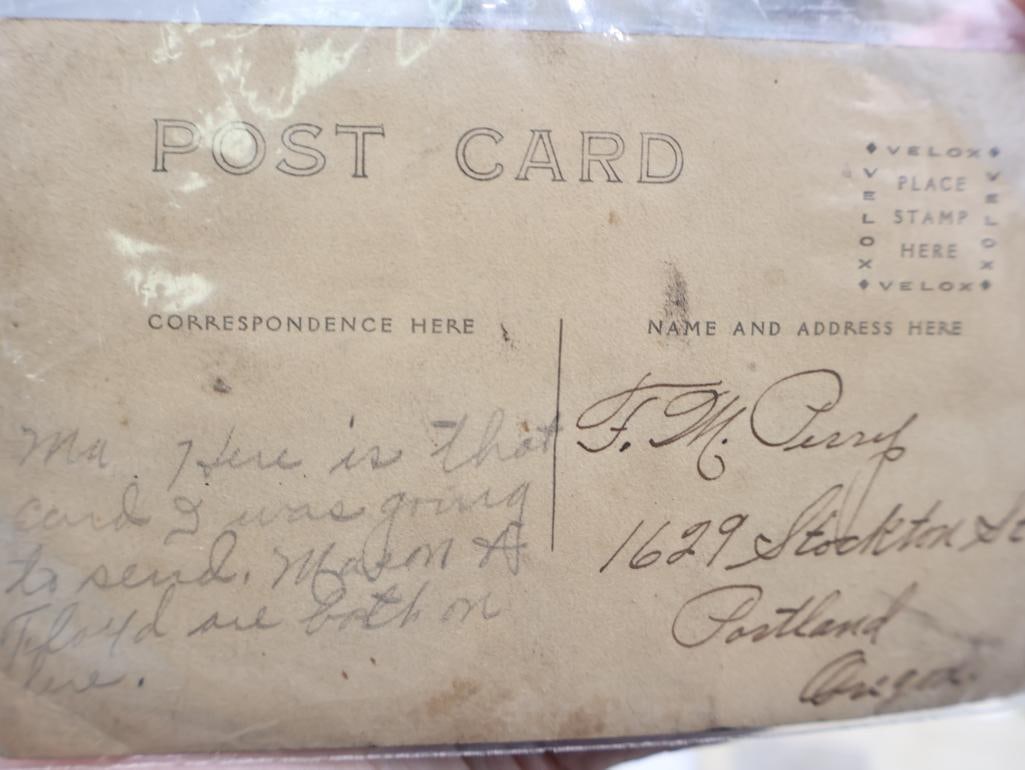 POST CARD
VELOX
VELOX
PLACE
STAMP
HERE
VELOX
VELOX
CORRESPONDENCE HERE
NAME AND ADDRESS HERE
Ma. Here is that
card I was going
to send. Mason &
Floyd are both on
here.
F. M. Perry
1629 Stockton St
Portland
Oregon.